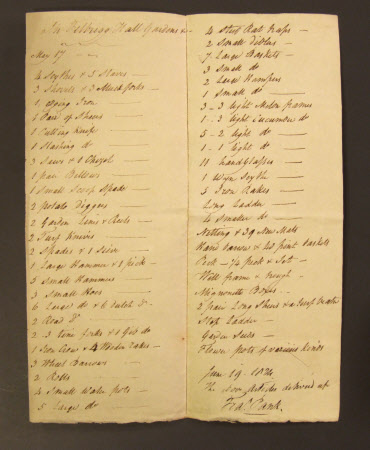 In Felbrigg Hall Gardens &c
May 17
4 Scythes & 3 Staves
3 Shovels & 3 Muck forks
1 Edging Iron
6 Pair of Shears
1 Cutting Knife
1 Hacking do
3 Saws & 1 Chezil
1 pair Bellows
1 Small Scoop Spade
2 potato Diggers
2 Garden Lines & Reels
2 Turf Knives
2 Spades & 1 Sieve
1 Large Hammer & 1 pick
3 Small Hammers
3 Small Hoes
6 Large do & 6 Dutch Do
2 Road Do
2 3 tine forks & 1
1 Iron Crow & 4 Wooden Rakes
3 Wheel Barrows
2 Rolls
4 Small Water pots
5 Large do
4 Steel Rat traps
2 Small Dibles
7 Large Baskets
3 Small do
2 Large Hampers
1 Small do
3 - 3 light Melon frames
1 - 3 light Cucumber do
5 - 2 light do
1 - 1 light do
11 hand Glasses
1 Scyth
5 Iron Rakes
Long Ladder
4 Smaler do
Netting & 39 New Mats
Hand barrow & 40 pint baskets
Peck - 1/2 peck &
Well frame & trough
Mignonette Boxes
2 pair Long Shears & a
Step Ladder
Garden
Flower pots of various kinds
June 19 1824
The above articles delivered at
Fredk Cank.